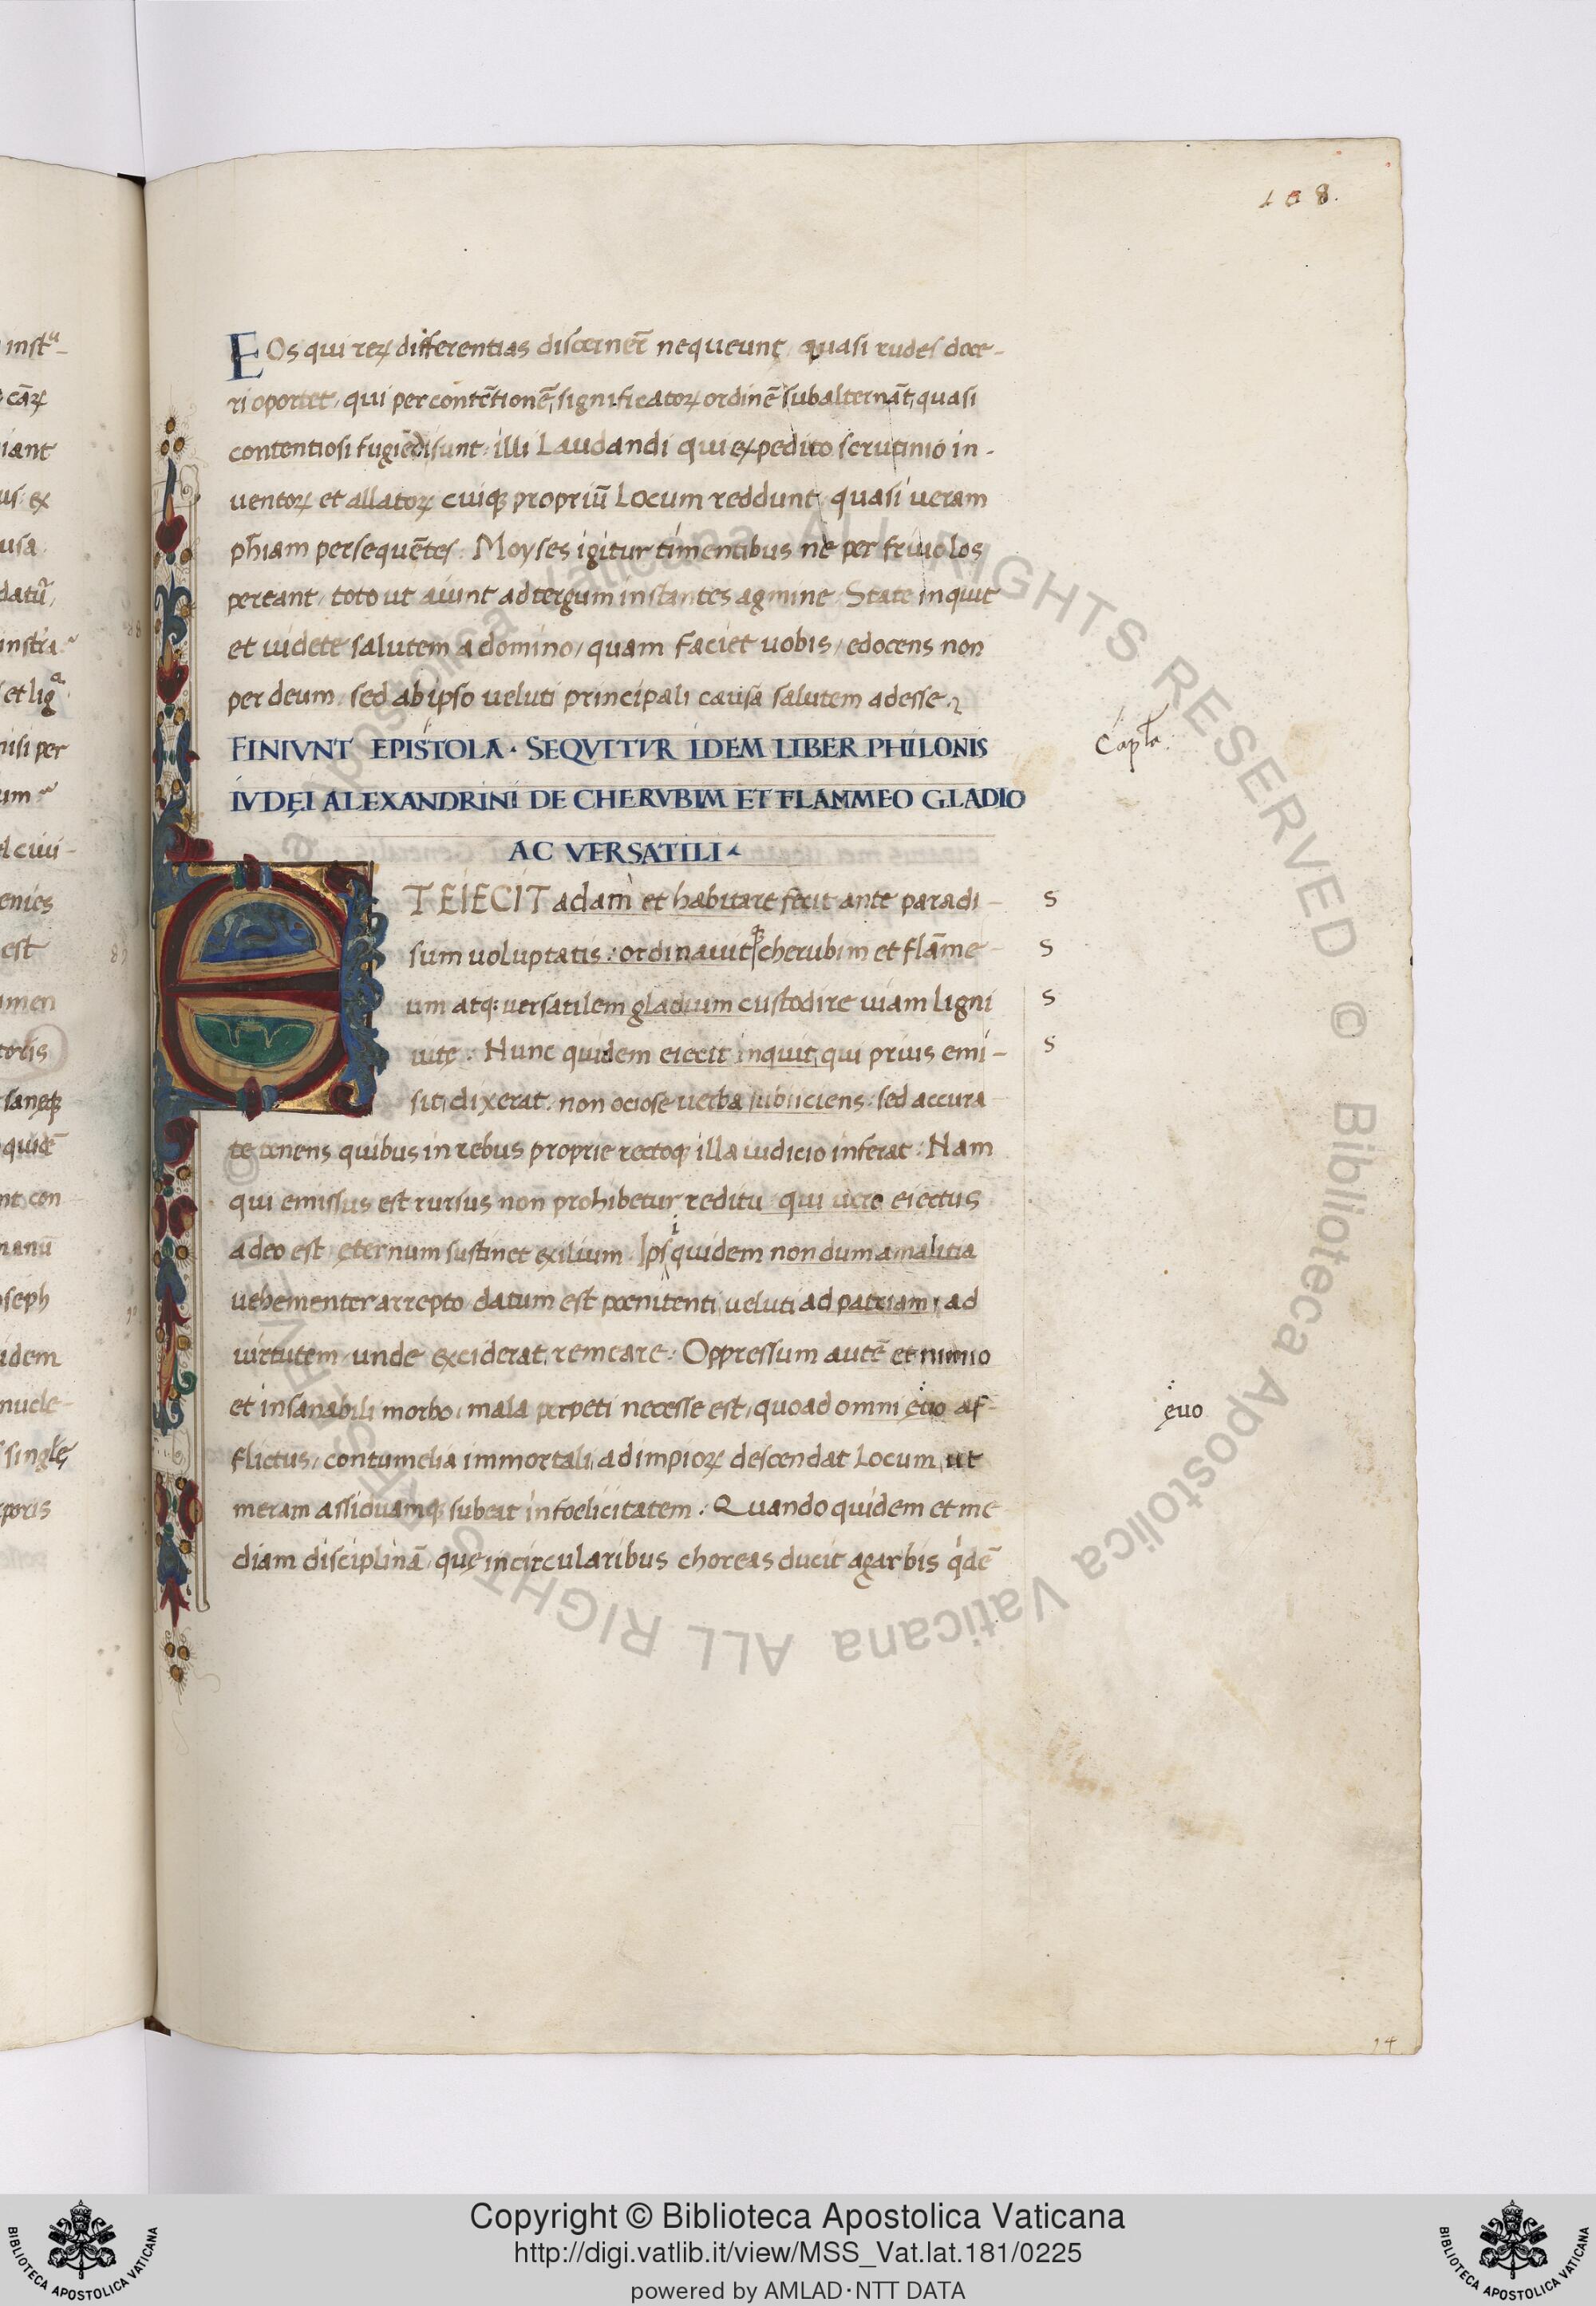 108.
EOs qui reꝝ differentias discerner̄ nequeunt, quasi rudes doce-
ri oportet, qui per contētionē, significatoꝝ ordinē subalternāt, quasi
contentiosi fugiēdi sunt: illi Laudandi qui expedito scrutinio in-
ventoꝝ et allatoꝝ cuiqꝫ propriū Locum reddunt, quasi veram
ph̄iam persequētes. Moyses igitur timentibus ne per frivolos
pereant, toto ut aiunt ad tergum instantes agmine. State inquit
et videte salutem a domino, quam faciet vobis, edocens non
per deum, sed ab ipso veluti principali causa salutem adesse.
FINIVNT EPISTOLA · SEQVITVR IDEM LIBER PHILONIS
Capła.
IVDĘI ALEXANDRINI DE CHERVBIM ET FLAMMEO GLADIO
AC VERSATILI
ET EIECIT adam et habitare fecit ante paradi- s
sum voluptatis: ordinavitqꝫ cherubim et flāme- s
um atqꝫ versatilem gladium custodire viam Ligni s
vitę. Hunc quidem eiecit inquit, qui prius emi- s
sit, dixerat. non ociose verba subiiciens: sed accura
te tenens quibus in rebus proprie recteqꝫ illa iudicio inferat: Nam
qui emissus est rursus non prohibetur reditu qui vero eiectus
a deo est ęternum sustinet exilium. Ipsi quidem nondum a malitia
vehementer arrepto datum est poenitenti, veluti ad patriam, ad
virtutem unde exciderat, remeare: Oppressum autē et nimio
et insanabili morbo, mala perpeti necesse est, quoad omni ęvo af-
ęvo
flictus, contumelia immortali, ad impioꝝ descendat Locum, ut
meram assiduamqꝫ subeat infoelicitatem: Quando quidem et me
diam disciplinā, quę in circularibus choreas ducit agar bis q̇dē
14
inst
cāꝝ
iant
us: ex
usa
datū,
instra
et lig
nisi per
um
l civi-
enies
est
amen
toris
saneqꝫ
quidē
nt, con
manū
oseph
idem
nucle-
singlę
poris
Copyright © Biblioteca Apostolica Vaticana
http://digi.vatlib.it/view/MSS_Vat.lat.181/0225
powered by AMLAD·NTT DATA
BIBLIOTECA APOSTOLICA VATICANA
BIBLIOTECA APOSTOLICA VATICANA
© Biblioteca Apostolica Vaticana ALL RIGHTS RESERVED